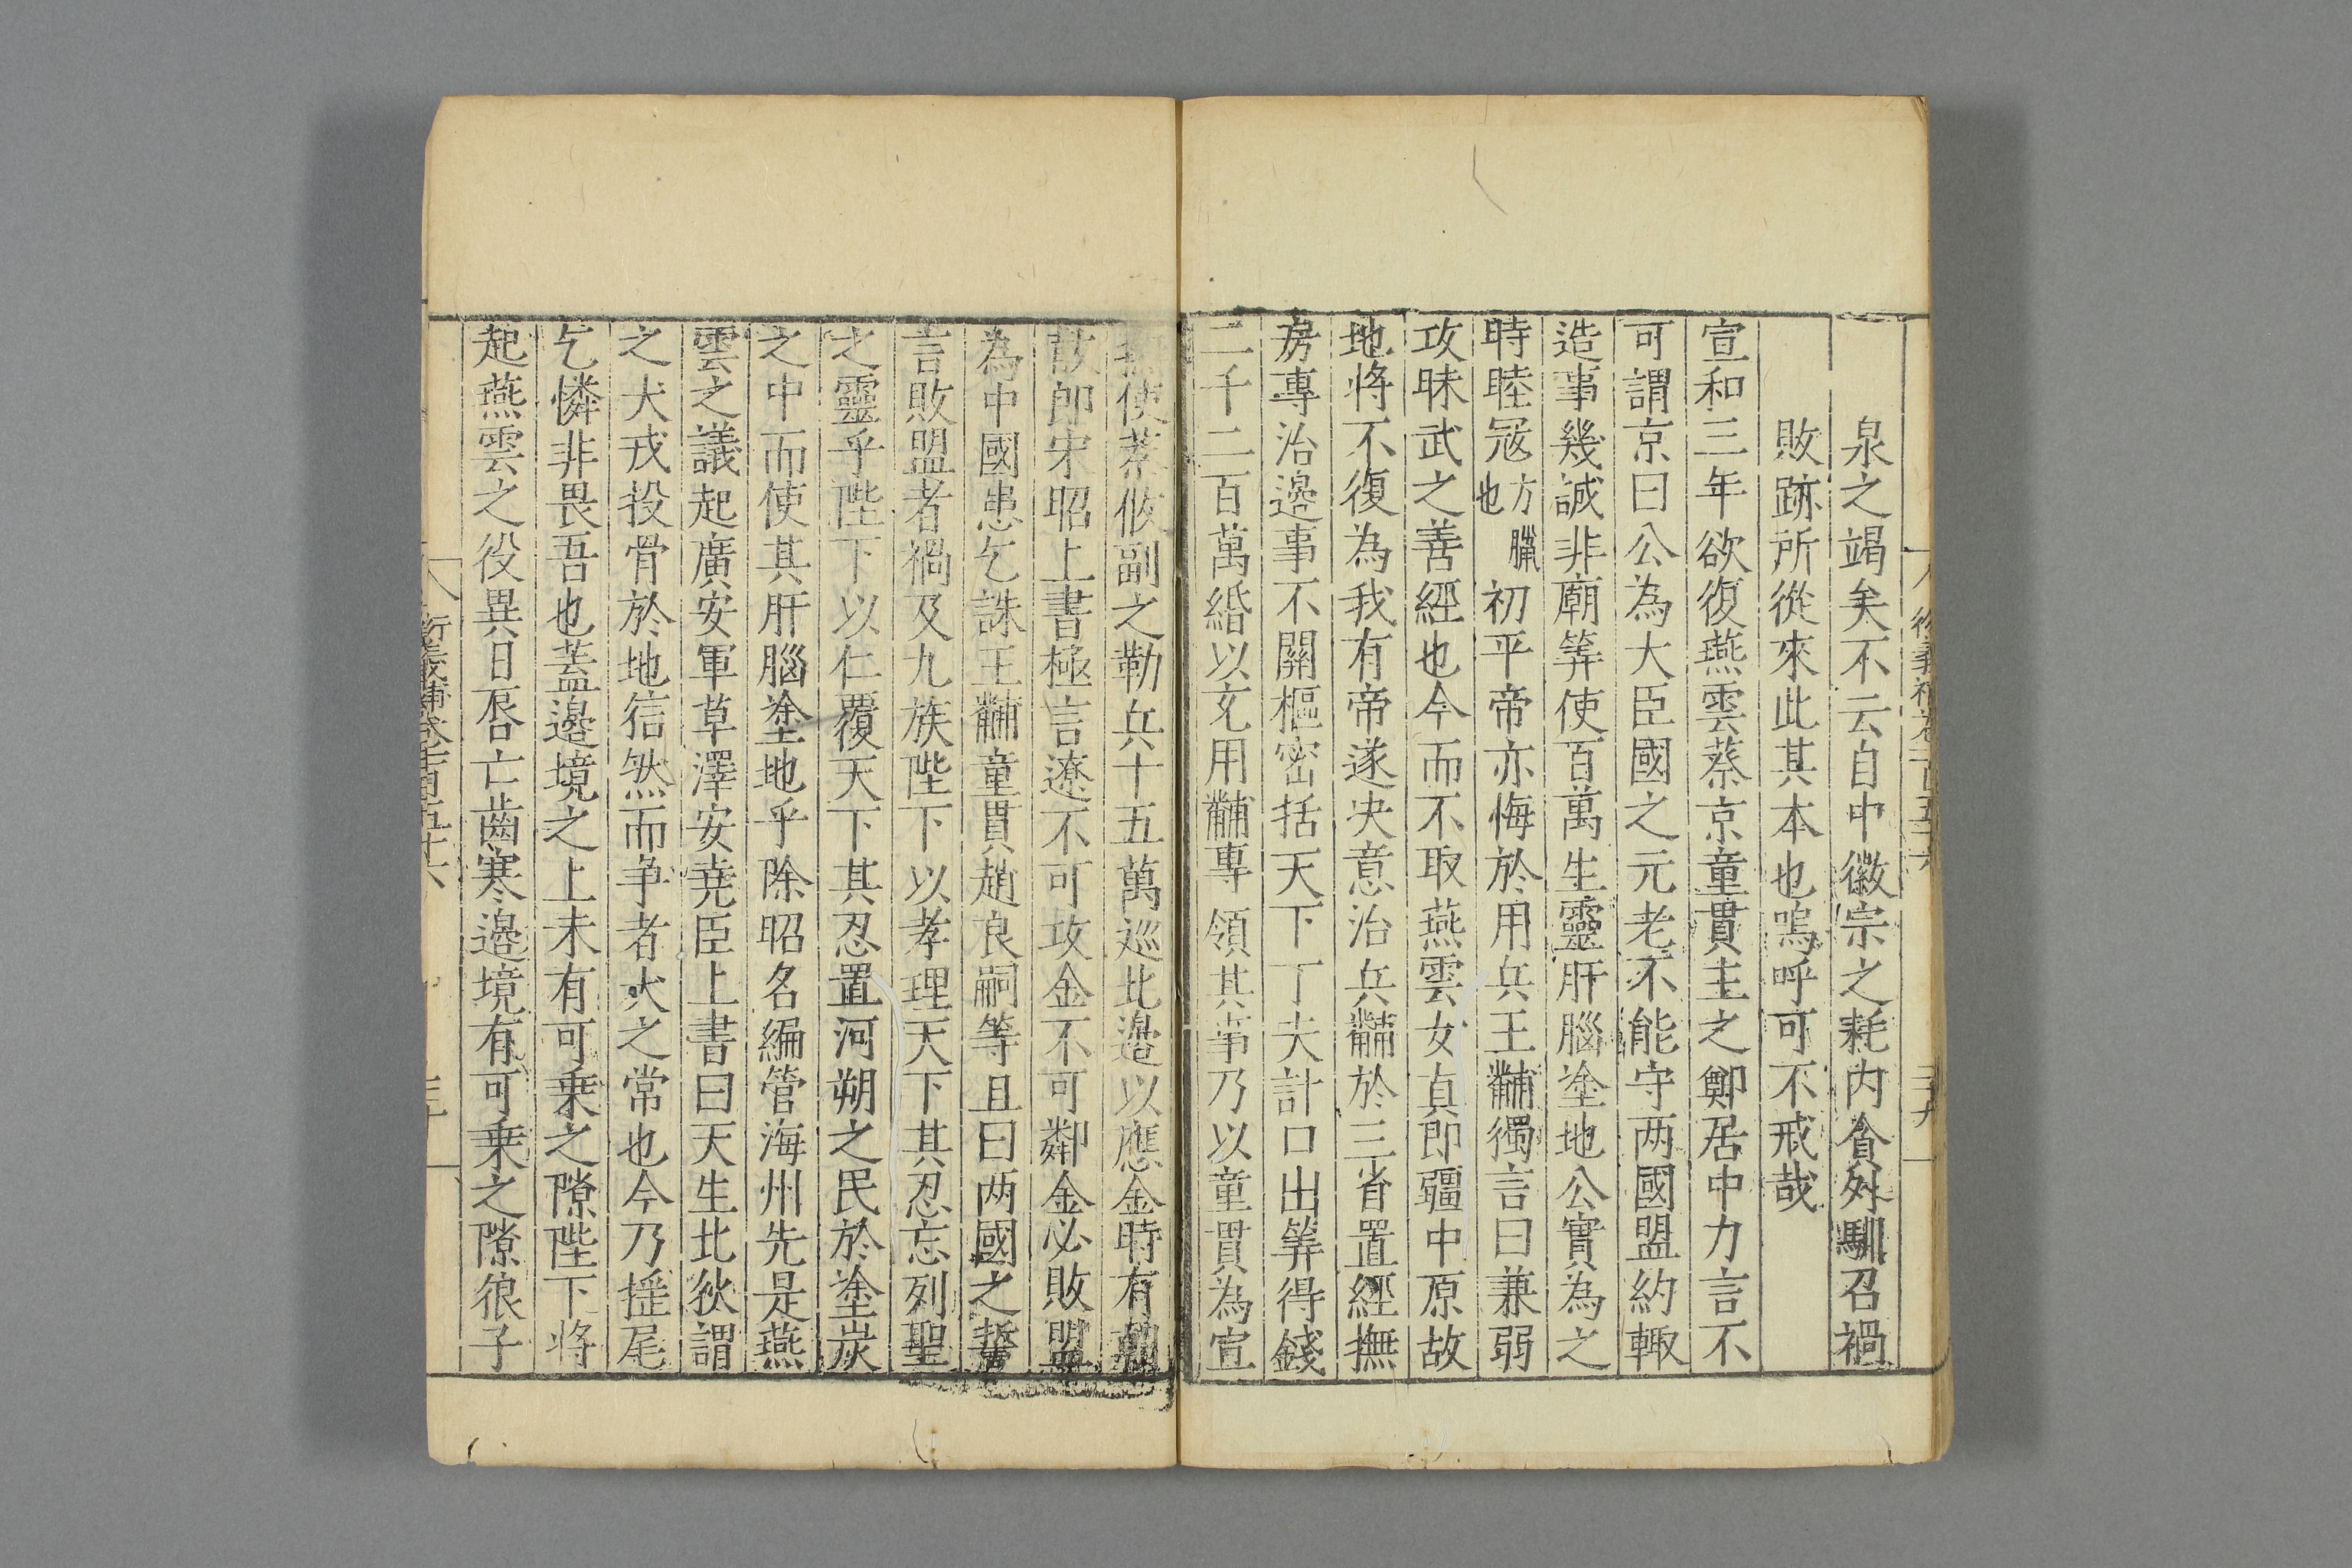 泉之竭矣不云自中徽宗之耗内貪外馴召禍
敗跡所從來此其本也嗚呼可不戒哉
宣和三年欲復燕雲蔡京童貫主之鄭居中力言不
可謂京曰公為大臣國之元老不能守两國盟約輙
造事幾誠非廟筭使百萬生靈肝腦塗地公實為之
時睦冦方臘也初平帝亦悔於用兵王黼獨言曰兼弱
攻昧武之善經也今而不取燕雲女真即疆中原故
地将不復為我有帝遂决意治兵黼於三省置經撫
房專治邊事不關樞密括天下丁夫計口出筭得錢
二千二百萬緡以充用黼專領其事乃以童貫為宣
撫使蔡攸副之勒兵十五萬巡北邊以應金時有朝
散郎宋昭上書極言遼不可攻金不可鄰金必敗盟
為中國患乞誅王黼童貫趙良嗣等且曰两國之誓
言敗盟者禍及九族陛下以孝理天下其忍忘列聖
之靈乎陛下以仁覆天下其忍置河朔之民於塗炭
之中而使其肝腦塗地乎除昭名編管海州先是燕
雲之議起廣安軍草澤安堯臣上書曰天生北狄謂
之犬戎投骨於地狺然而争者犬之常也今乃揺尾
乞憐非畏吾也蓋邊境之上未有可乗之隙陛下将
起燕雲之役異日唇亡齒寒邊境有可乗之隙狼子
衍義補卷一百五十六